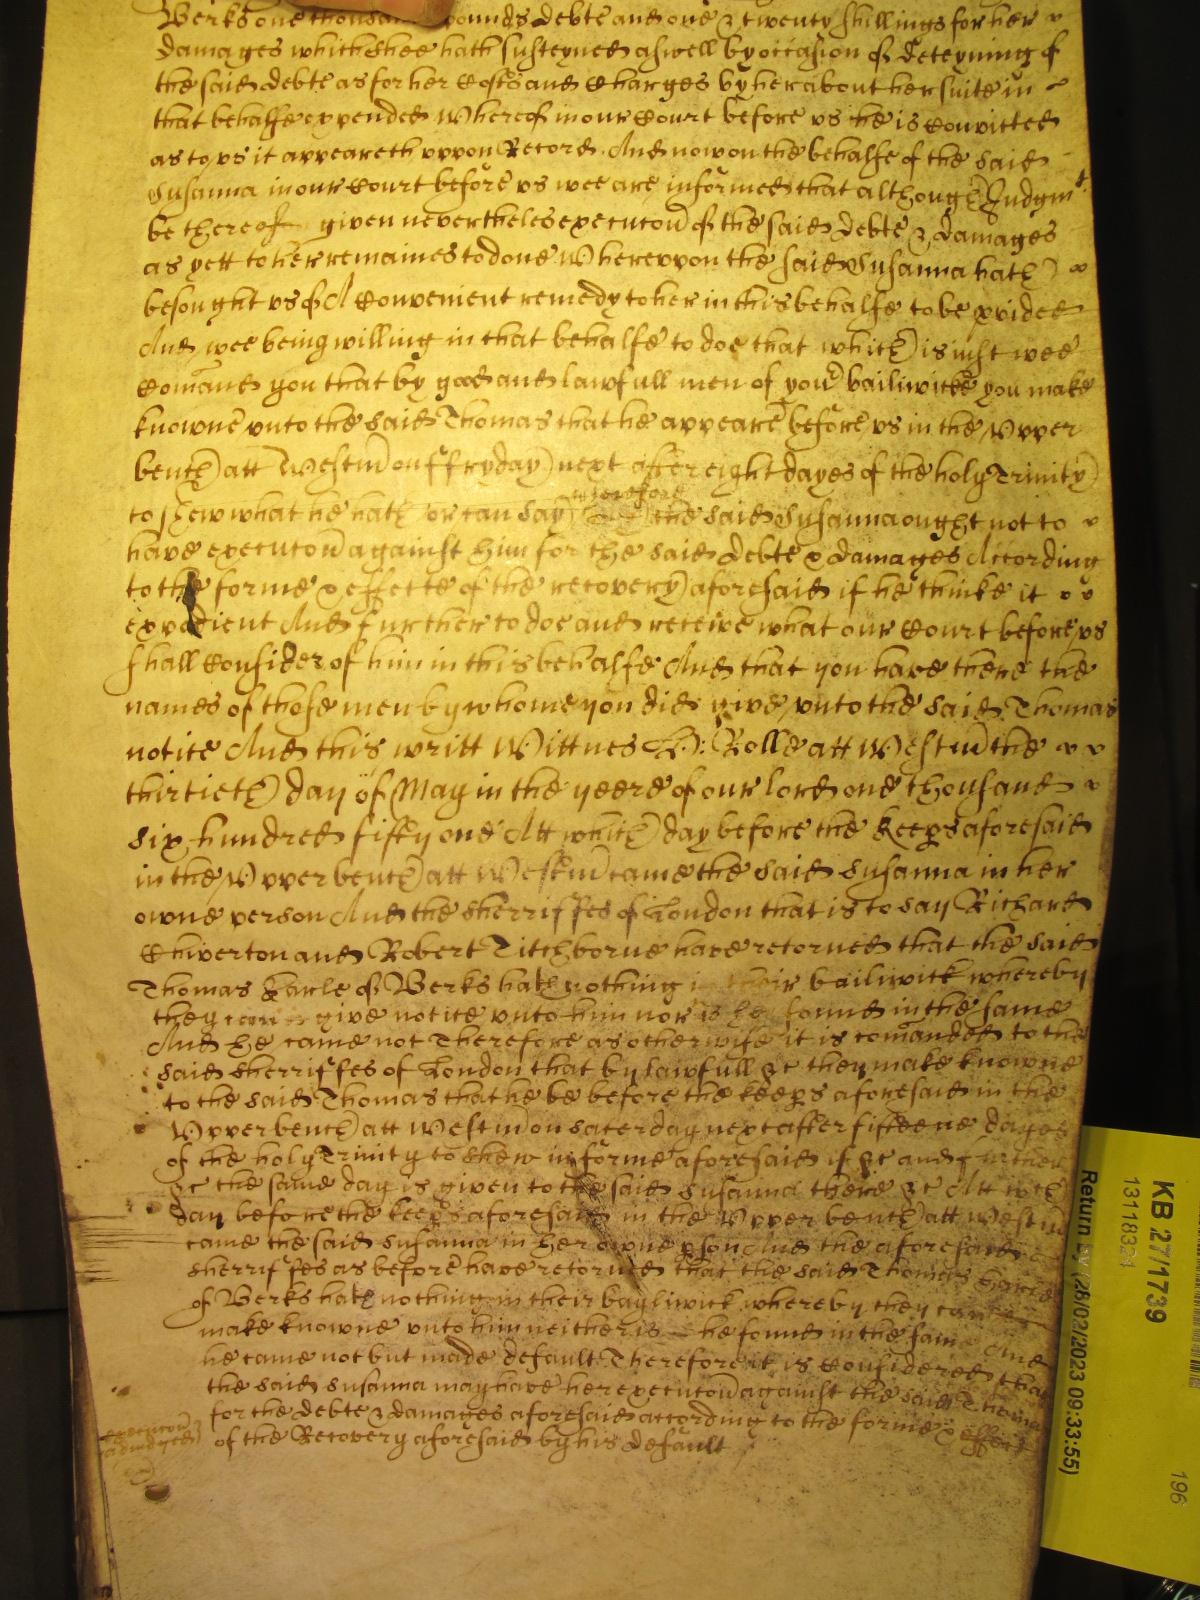 Berks one thousand pounds debte and one & twenty shillings for her
damages which shee hath susteyned aswell by occasion of deteyning of
the said debte as for her Costs and Charges by her about her suite in
that behalfe expended Whereof in our Court before us he is Convicted
as to us it appeareth uppon Record. And now on the behalfe of the said
Susanna in our Court before us wee are informed that although Judgmt
be thereof given nevertheles execucon of the said debte & damages
as yett to her remaines to done Whereuppon the said Susanna hath
besought us of A Convenient remedy to her in this behalfe to be pvided
And wee being willing in that behalfe to doe that which is just wee
Comand you that by good and lawfull men of your bailiwicke you make
knowne unto the said Thomas that he appeare before us in the Upper
bench att Westm on ffryday next after eight dayes of the holy Trinity
to shew what he hath or can say wherefore the said Susanna ought not to
have execucon against him for the said debte & damages According
to the forme & effecte of the recovery aforesaid if he thinke it
expedient And further to doe and receive what our Court before us
shall Consider of him in this behalfe And that you have there the
names of those men by whome you did give unto the said Thomas
notice And this writt Wittnes H: Rolle att Westm the
thirtieth day of May in the yeere of our lord one thousand
six hundred fifty one Att which day before the Keeps aforesaid
in the Upper bench att Westm came the said Susanna in her
owne person And the Sherriffes of London that is to say Richard
Chiverton and Robert Titchborne have retorned that the said
Thomas Earle of Berks hath nothing in their bailiwick whereby
they can give notice unto him nor is he found in the same
And he came not Therefore as otherwise it is comanded to the
said Sherriffes of London that by lawfull &c they make knowne
to the said Thomas that he be before the keeps aforesaid in the
Upper bench att Westm on Saterday next after fifteene dayes
of the holy Trinity to shew in forme aforesaid if &c and further
&c the same day is given to the said Susanna there &c Att wch
day before the keeps aforesaid in the Upper bench att Westm
came the said Susanna in her owne pson And the aforesaid
Sherriffes as before have retorned that the said Thomas Earle
of Berks hath nothing in their bayliwick whereby they can
make knowne unto him neither is he found in the same And
he came not but made default Therefore it is Considered that
the said Susanna may have her execucon against the said Thomas
for the debte & damages aforesaid according to the forme & effect
of the Recovery aforesaid by his default
execucon
adiudged
KB 27/1739
13118324
Return by (28/02/2023 09:33:55)
196